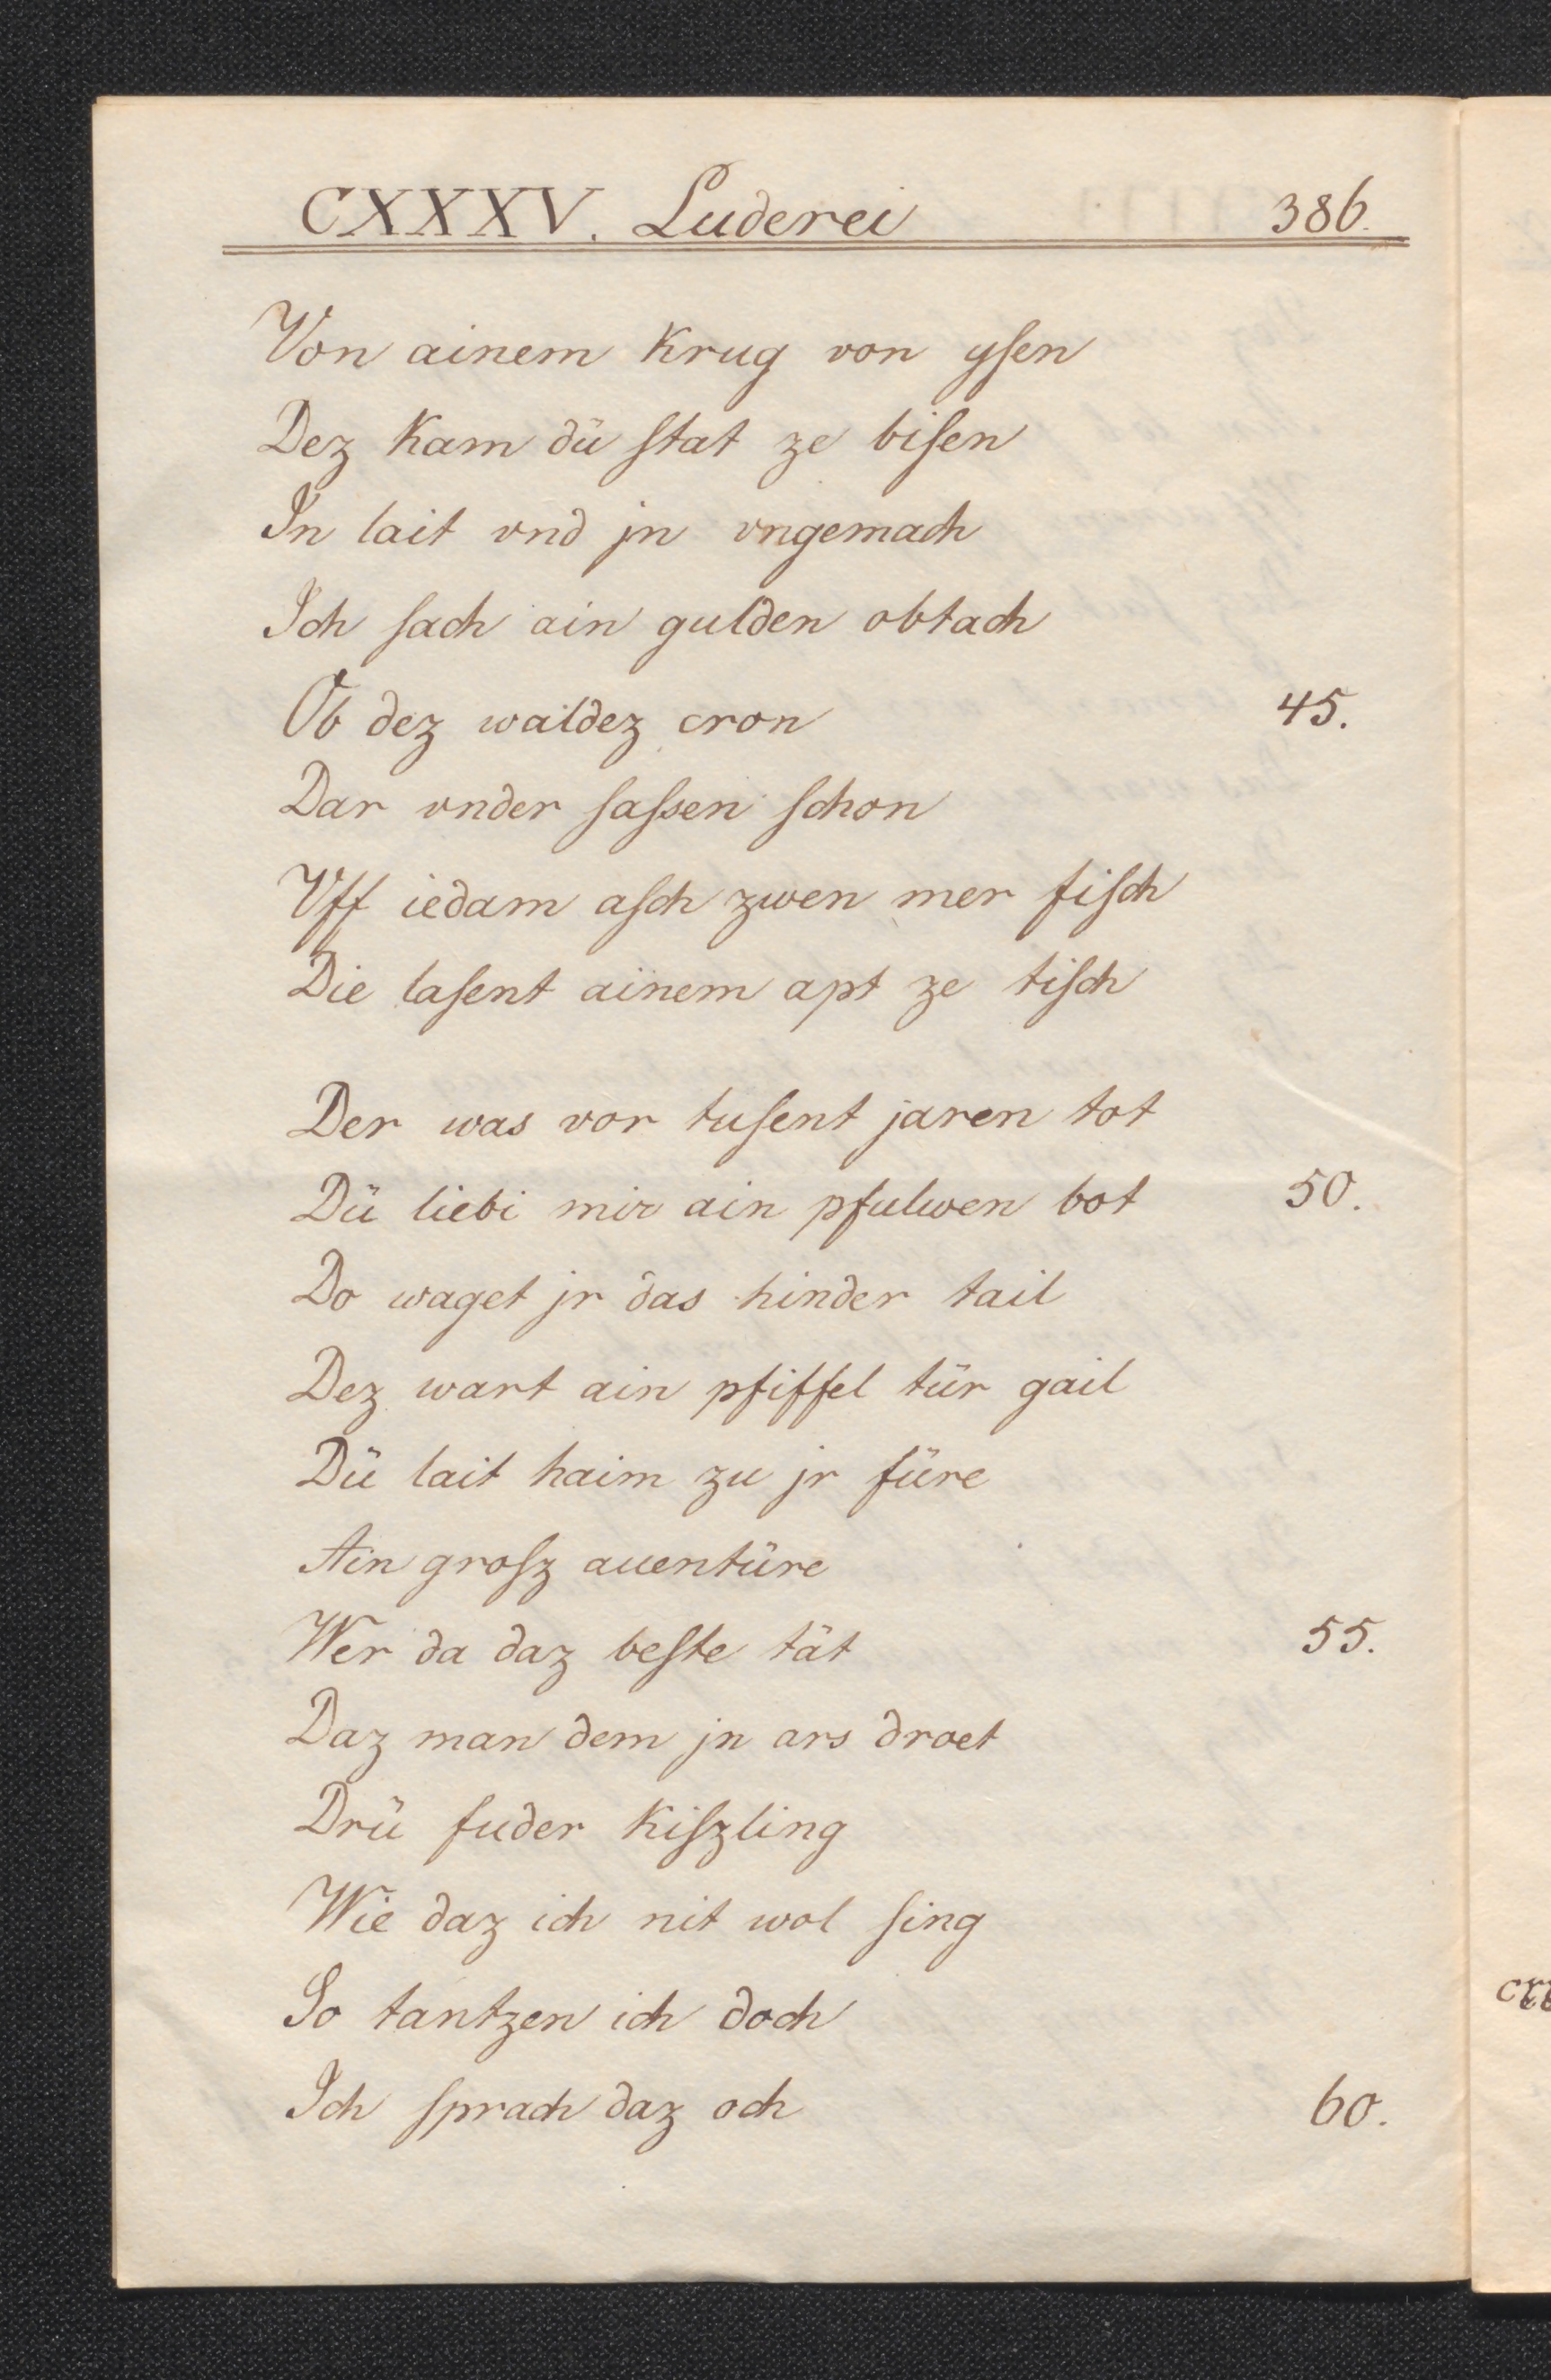 CXXXV. Luderei 386.
Von ainem Krug von ysen
Dez Kam dü ſtat ze biſen
In lait vnd jn vngemach
Ich ſach ain gulden obtach
Ob dez waldez cron 45.
Dar vnder ſaſsen ſchon
Vff iedam aſch zwen mer fiſch
Die laſent ainem apt ze tiſch
Der was vor tuſent jaren tot
Dü liebi mir ain pfulwen bot 50.
Do waget jr das hinder tail
Dez wart ain pfiffel tür gail
Dü lait haim zu jr füre
Ain groſz auentüre
Wer da daz beſte tät 55.
Daz man dem jn ars droet
Drü fuder Kiſzling
Wie daz ich nit wol ſing
So tantzen ich doch
Ich ſprach daz och 60.